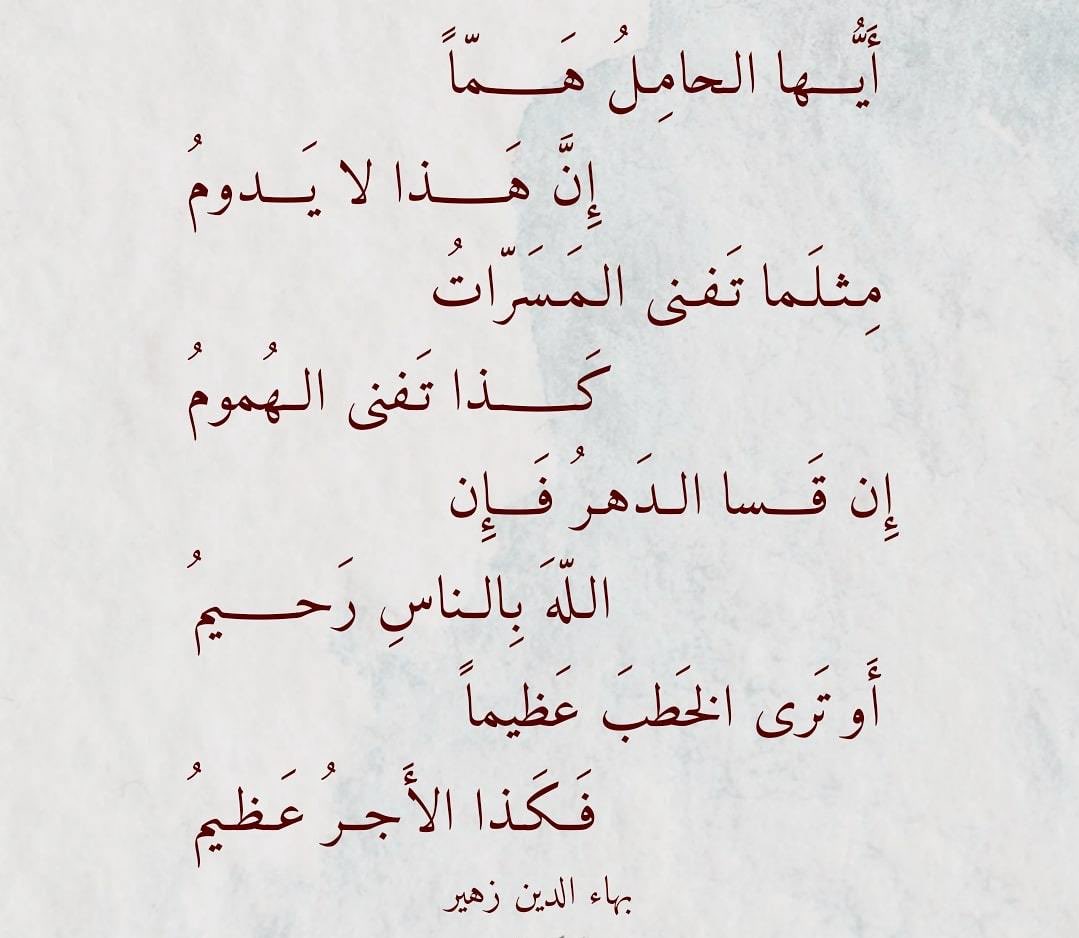 أَيُّها الحامِلُ هَمّاً
إِنَّ هَذا لا يَدومُ
مِثلَما تَفنى المَسَرّاتُ
كَذا تَفنى الهُمومُ
إِن قَسا الدَهرُ فَإِن
اللّهَ بِالناسِ رَحيمُ
أَو تَرى الخَطبَ عَظيماً
فَكَذا الأَجرُ عَظيمُ
بهاء الدين زهير